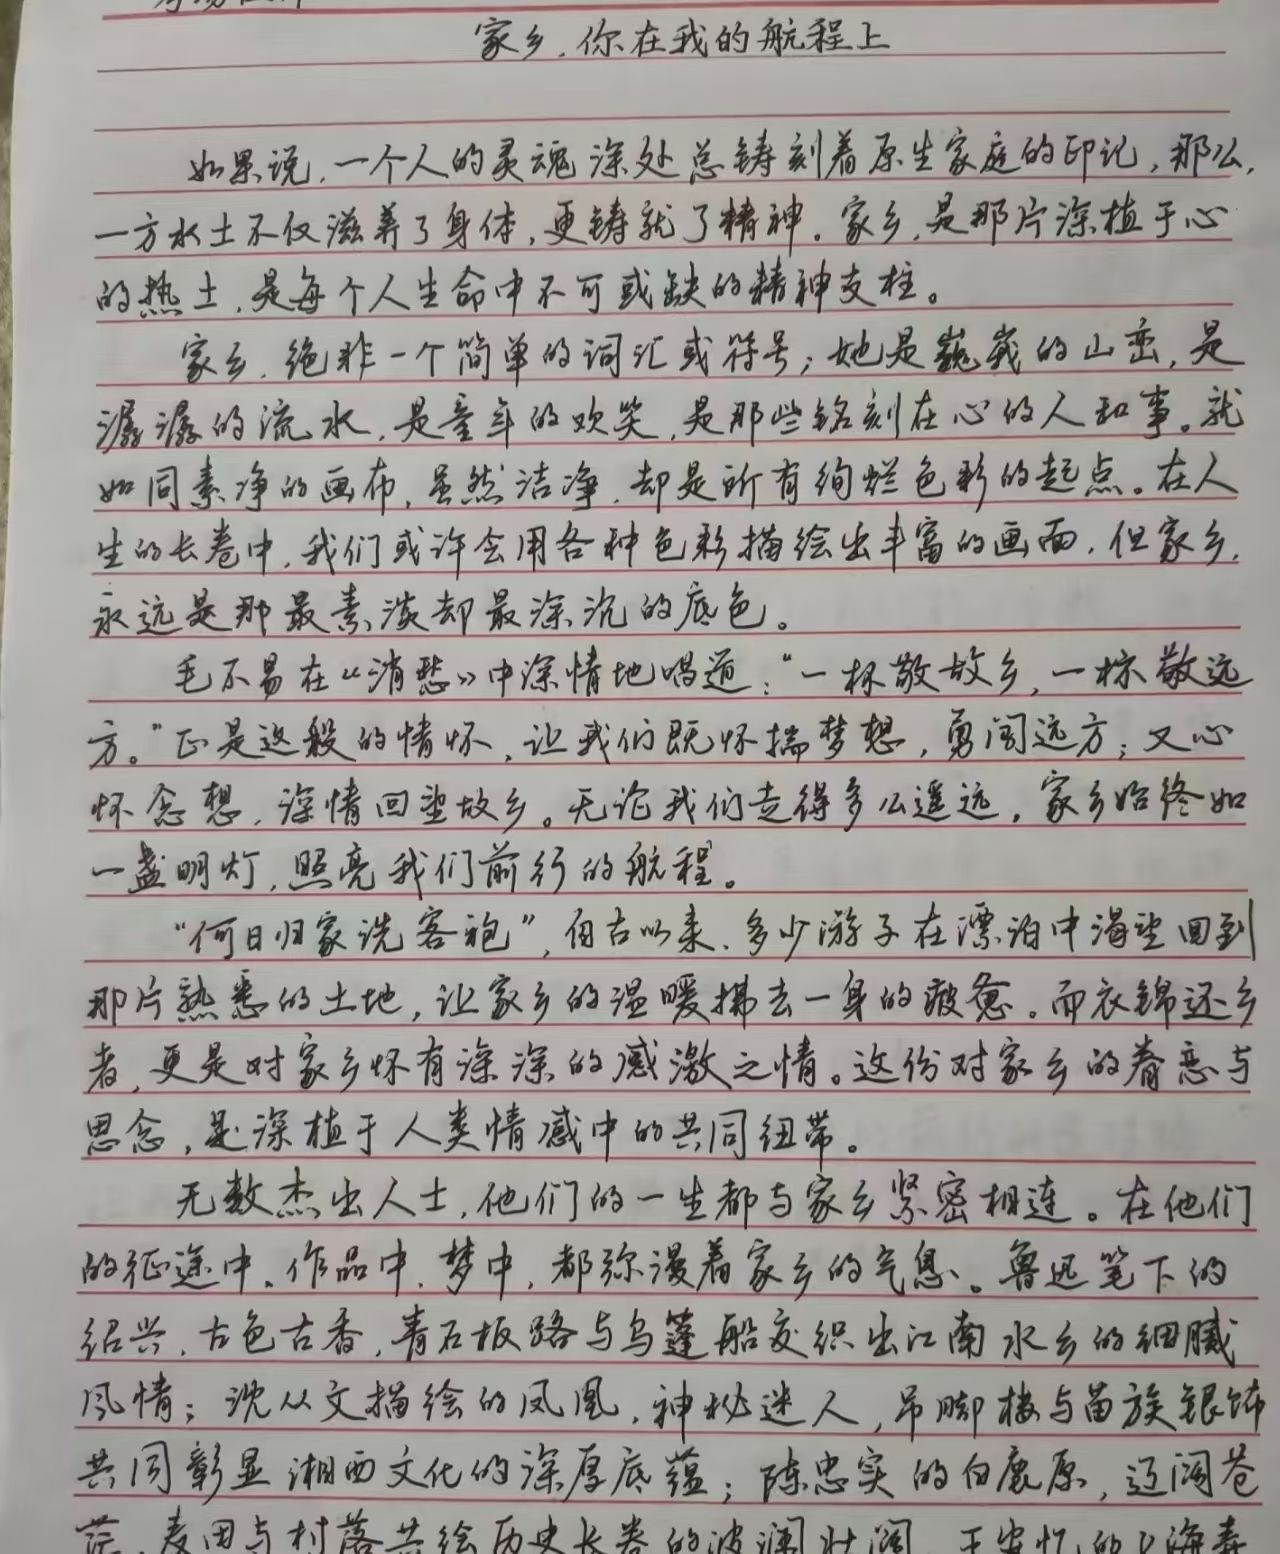 家乡,你在我的航程上
如果说,一个人的灵魂深处总铸刻着原生家庭的印记,那么,
一方水土不仅滋养了身体,更铸就了精神。家乡,是那片深植于心
的热土,是每个人生命中不可或缺的精神支柱。
家乡,绝非一个简单的词汇或符号;她是巍峨的山峦,是
潺潺的流水,是童年的欢笑,是那些铭刻在心的人和事。就
如同素净的画布,虽然洁净,却是所有绚烂色彩的起点。在人
生的长卷中,我们或许会用各种色彩描绘出丰富的画面,但家乡,
永远是那最素淡却最深沉的底色。
毛不易在《消愁》中深情地唱道:“一杯敬故乡,一杯敬远
方。”正是这般的情怀,让我们既怀揣梦想,勇闯远方;又心
怀念想,深情回望故乡。无论我们走得多么遥远,家乡始终如
一盏明灯,照亮我们前行的航程。
“何日归家洗客袍”,自古以来,多少游子在漂泊中渴望回到
那片熟悉的土地,让家乡的温暖拂去一身的疲惫。而衣锦还乡
者,更是对家乡怀有深深的感激之情。这份对家乡的眷恋与
思念,是深植于人类情感中的共同纽带。
无数杰出人士,他们的一生都与家乡紧密相连。在他们
的征途中、作品中、梦中,都弥漫着家乡的气息。鲁迅笔下的
绍兴,古色古香,青石板路与乌篷船交织出江南水乡的细腻
风情;沈从文描绘的凤凰,神秘迷人,吊脚楼与苗族银饰
共同彰显湘西文化的深厚底蕴;陈忠实的白鹿原,辽阔苍
茫,麦田与村落共绘历史长卷的波澜壮阔,王安忆的上海弄